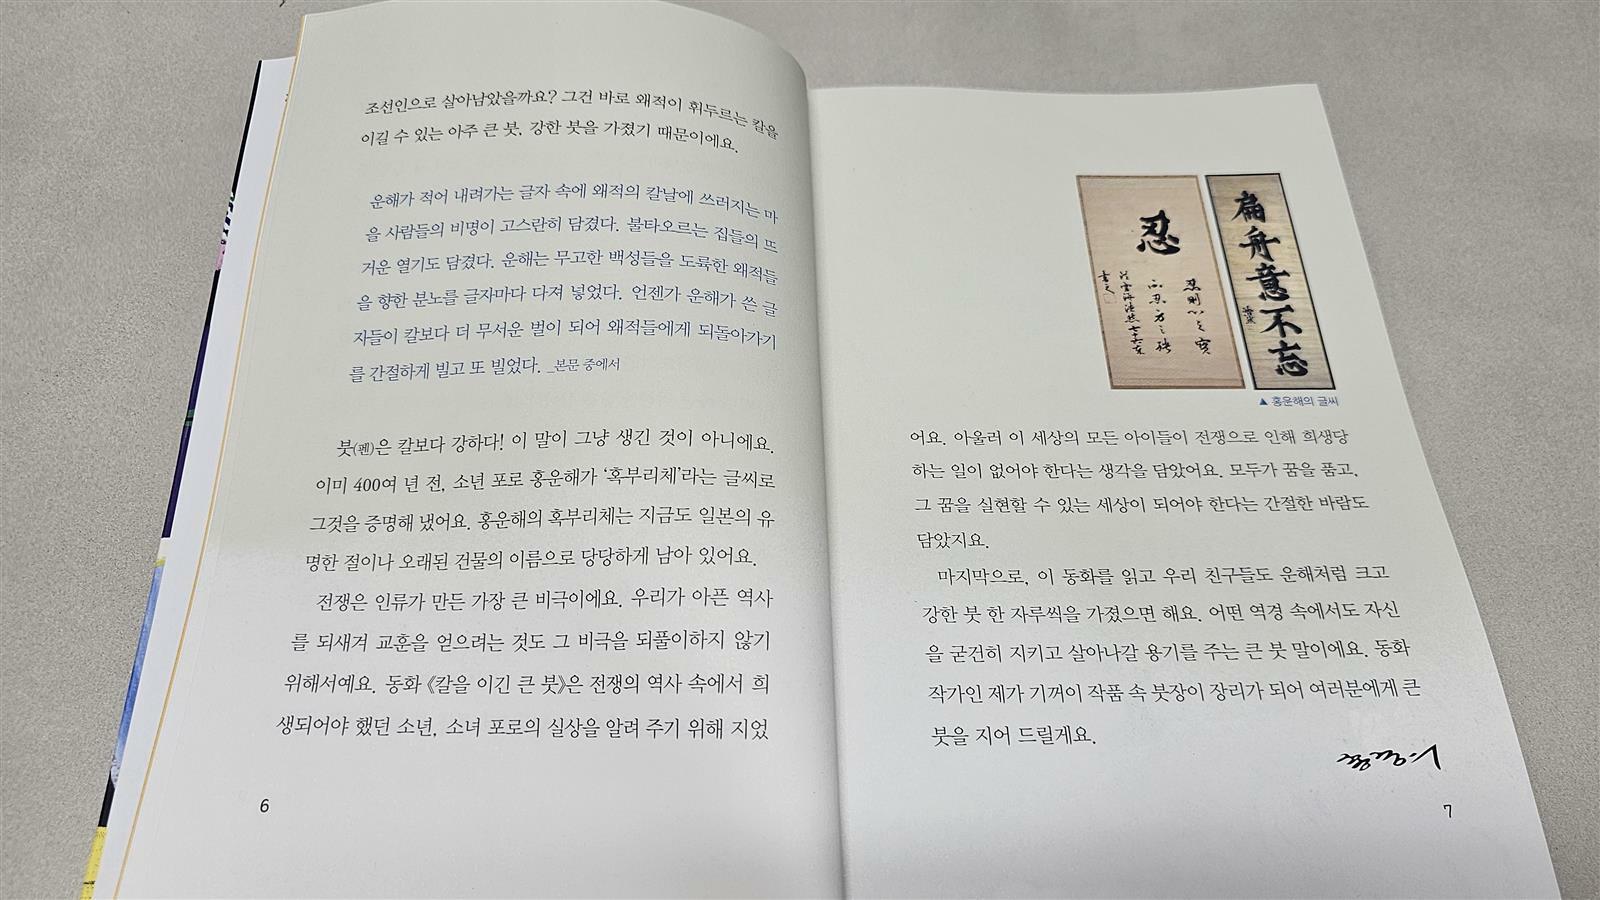 조선인으로 살아남았을까요? 그건 바로 왜적이 휘두르는 칼을
이길 수 있는 아주 큰 붓, 강한 붓을 가졌기 때문이에요.
운해가 적어 내려가는 글자 속에 왜적의 칼날에 쓰러지는 마
을 사람들의 비명이 고스란히 담겼다. 불타오르는 집들의 뜨
거운 열기도 담겼다. 운해는 무고한 백성들을 도륙한 왜적들
을 향한 분노를 글자마다 다져 넣었다. 언젠가 운해가 쓴 글
자들이 칼보다 더 무서운 벌이 되어 왜적들에게 되돌아가기
를 간절하게 빌고 또 빌었다. _본문 중에서
붓(펜)은 칼보다 강하다! 이 말이 그냥 생긴 것이 아니에요.
이미 400여 년 전, 소년 포로 홍운해가 ‘혹부리체’라는 글씨로
그것을 증명해 냈어요. 홍운해의 혹부리체는 지금도 일본의 유
명한 절이나 오래된 건물의 이름으로 당당하게 남아 있어요.
전쟁은 인류가 만든 가장 큰 비극이에요. 우리가 아픈 역사
를 되새겨 교훈을 얻으려는 것도 그 비극을 되풀이하지 않기
위해서예요. 동화 《칼을 이긴 큰 붓》은 전쟁의 역사 속에서 희
생되어야 했던 소년, 소녀 포로의 실상을 알려 주기 위해 지었
6
忍
忍則心之寶
扁舟意不忘
▲ 홍운해의 글씨
어요. 아울러 이 세상의 모든 아이들이 전쟁으로 인해 희생당
하는 일이 없어야 한다는 생각을 담았어요. 모두가 꿈을 품고,
그 꿈을 실현할 수 있는 세상이 되어야 한다는 간절한 바람도
담았지요.
마지막으로, 이 동화를 읽고 우리 친구들도 운해처럼 크고
강한 붓 한 자루씩을 가졌으면 해요. 어떤 역경 속에서도 자신
을 굳건히 지키고 살아나갈 용기를 주는 큰 붓 말이에요. 동화
작가인 제가 기꺼이 작품 속 붓장이 장리가 되어 여러분에게 큰
붓을 지어 드릴게요.
7